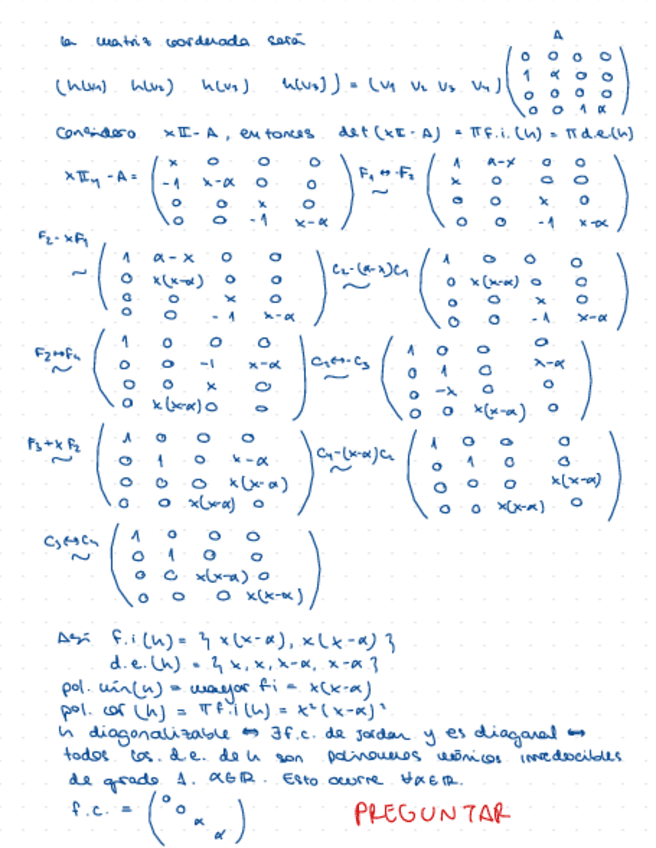 la matriz coordenada será
A
(h(v1) h(v2) h(v3) h(v3)) = (v1 v2 v3 v4) ( 0 0 0 0
1 α 0 0
0 0 0 0
0 0 1 α )
Considero xII - A, entonces det(xII - A) = π f.i.(h) = π d.e.(h)
xII4 - A = ( x 0 0 0 ) F1 ↔ -F2 ( 1 α-x 0 0 )
-1 x-α 0 0 ~ x 0 0 0
0 0 x 0 0 0 x 0
0 0 -1 x-α 0 0 -1 x-α
F2 - xF1 ~ ( 1 α-x 0 0 ) C2-(α-x)C1 ~ ( 1 0 0 0 )
0 x(x-α) 0 0 0 x(x-α) 0 0
0 0 x 0 0 0 x 0
0 0 -1 x-α 0 0 -1 x-α
F2↔F4 ~ ( 1 0 0 0 ) C2↔-C3 ~ ( 1 0 0 0 )
0 0 -1 x-α 0 1 0 x-α
0 0 x 0 0 -x 0 0
0 x(x-α) 0 0 0 0 x(x-α) 0
F3+xF2 ~ ( 1 0 0 0 ) C4-(x-α)C2 ~ ( 1 0 0 0 )
0 1 0 x-α 0 1 0 0
0 0 0 x(x-α) 0 0 0 x(x-α)
0 0 x(x-α) 0 0 0 x(x-α) 0
C3↔C4 ~ ( 1 0 0 0 )
0 1 0 0
0 0 x(x-α) 0
0 0 0 x(x-α)
Así f.i(h) = { x(x-α), x(x-α) }
d.e.(h) = { x, x, x-α, x-α }
pol. min(h) = mayor fi = x(x-α)
pol. car (h) = π f.i(h) = x²(x-α)²
h diagonalizable ↔ ∃ f.c. de jordan y es diagonal ↔
todos los d.e. de h son polinomios mónicos irreducibles
de grado 1. α∈R. Esto ocurre ∀α∈R.
f.c. = ( 0
0
α
α )
PREGUNTAR